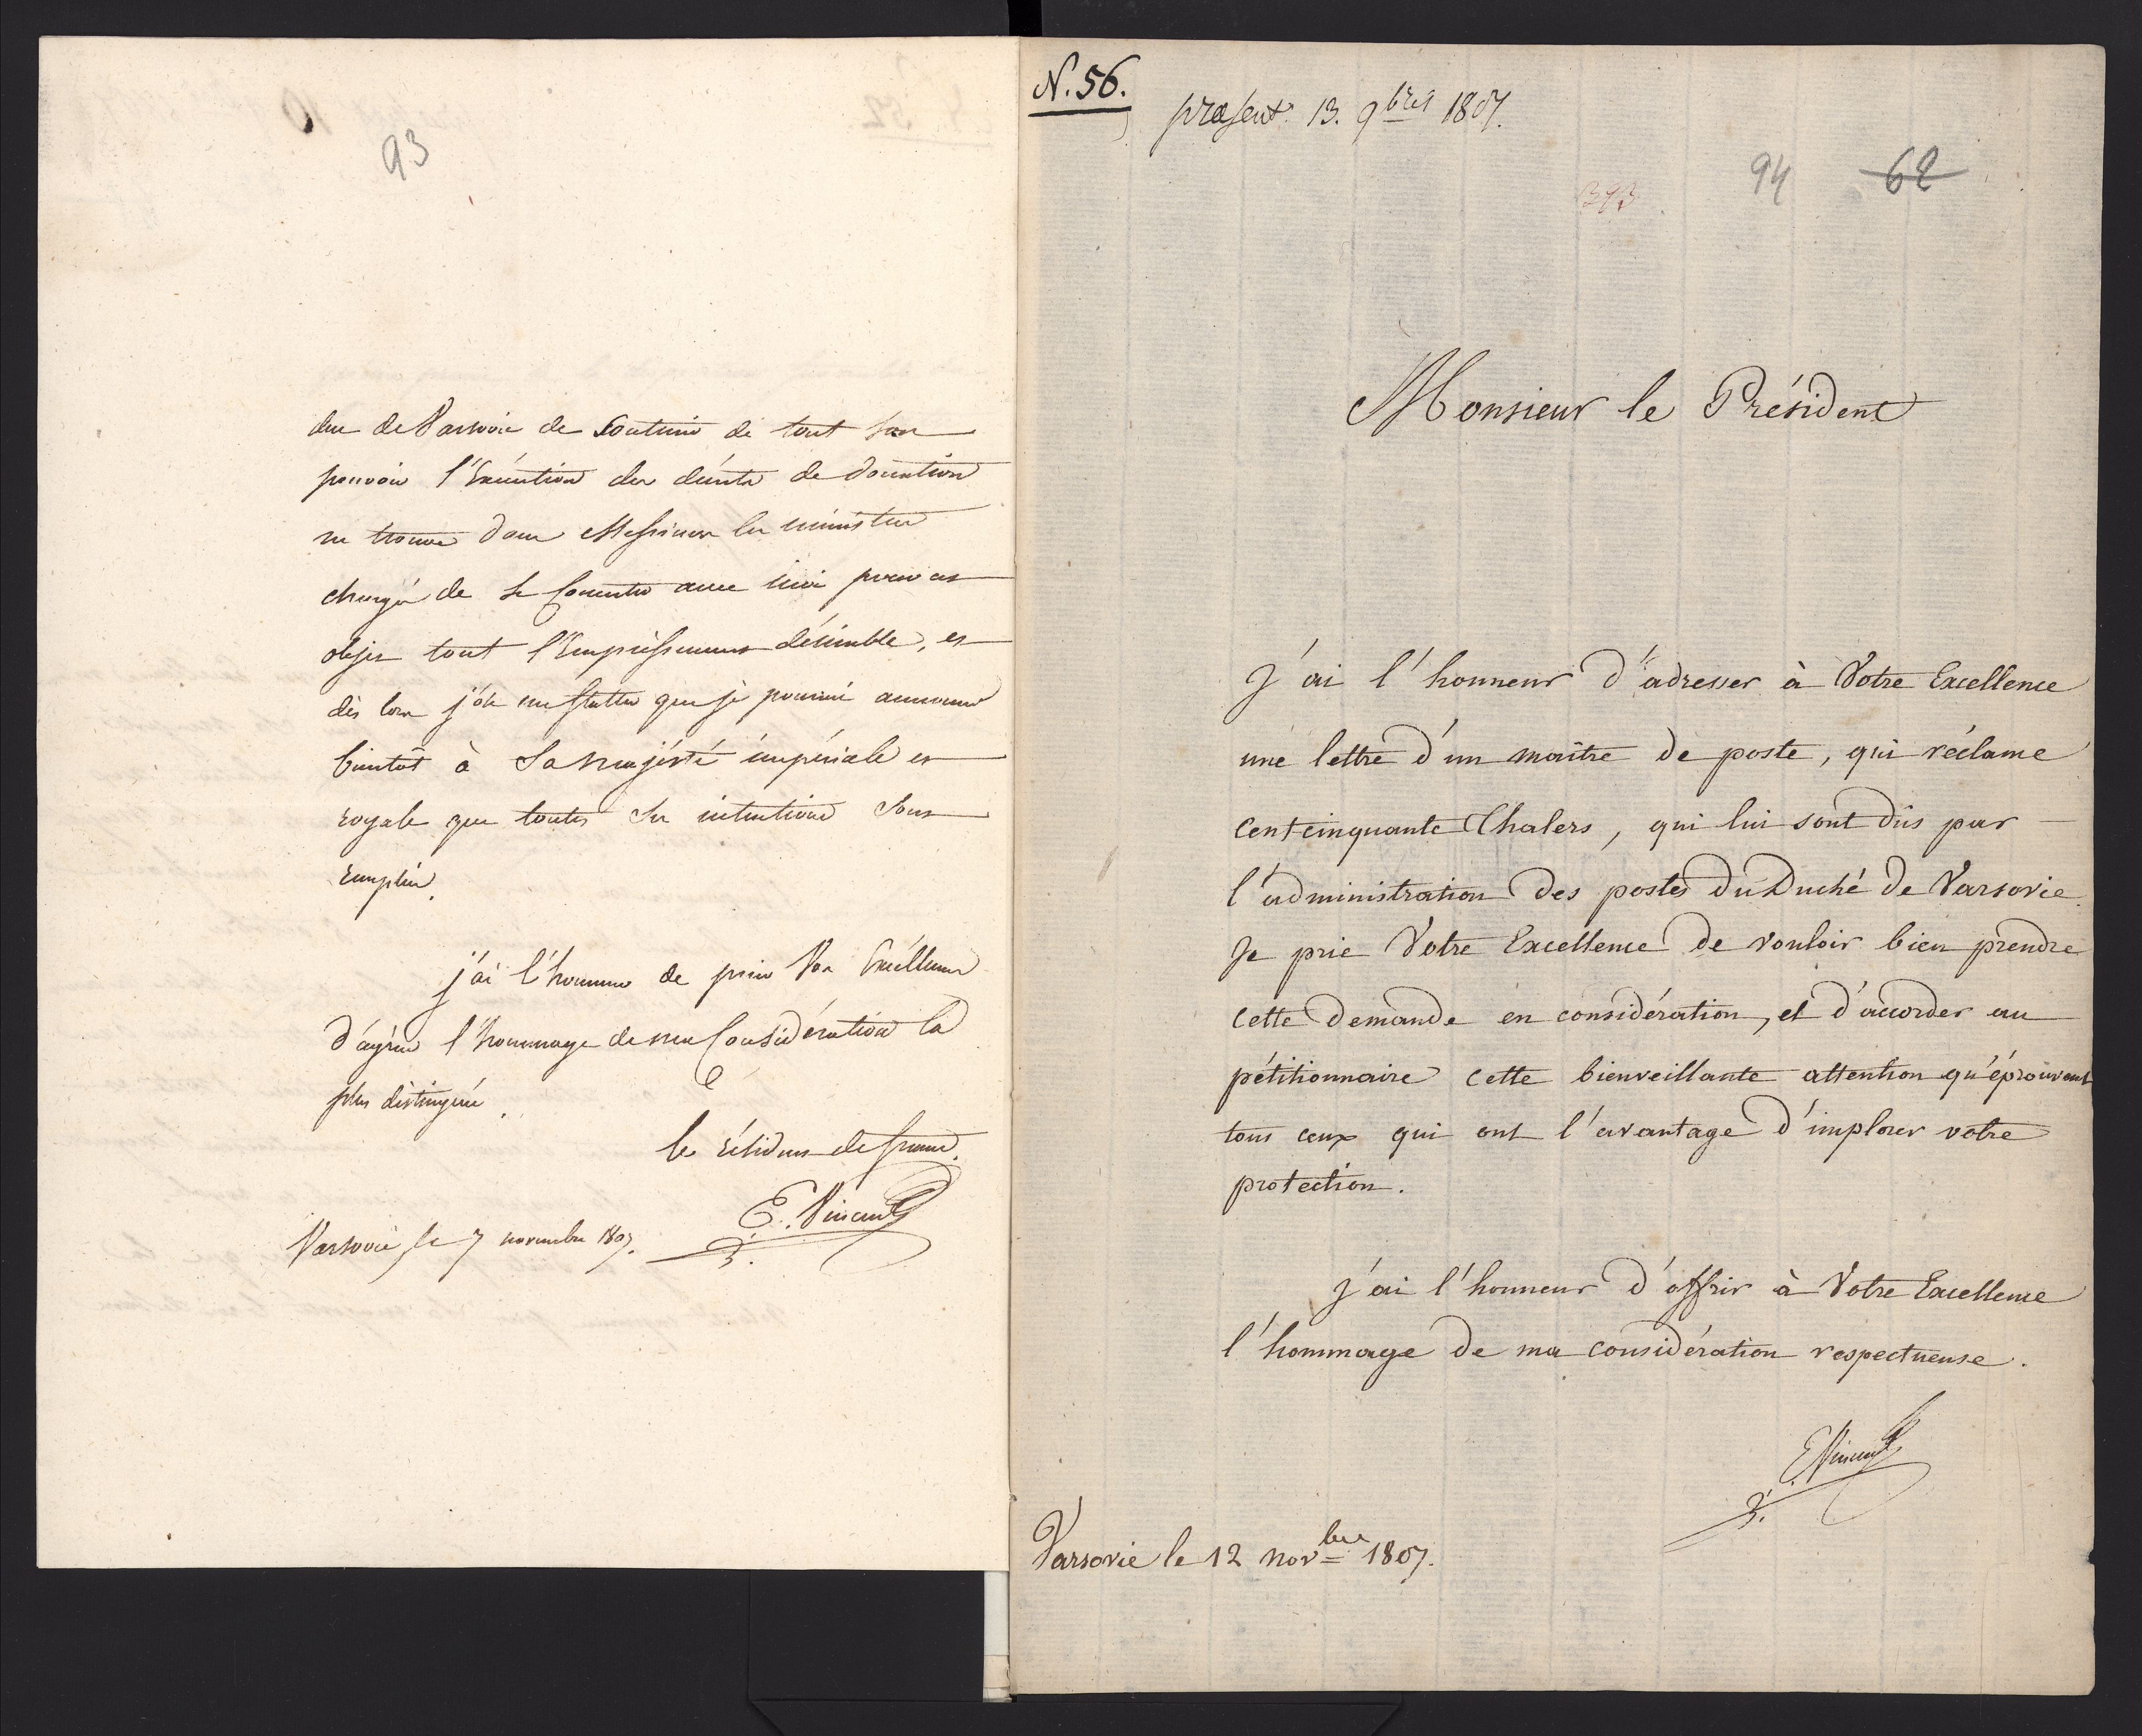 93
duc de Varsovie de soutenir de tout son
pouvoir l'Exécution des décrets de donation
ne trouve dans Messieurs les ministres
chargés de se concerter avec moi pour cet
objet tout l'Empressement désirable, et
dès lors j'ose me flatter que je pourrai annoncer
bientôt à Sa Majésté impériale et
royale que toutes ses intentions sont
remplies.
j'ai l'honneur de prier Son Excéllence
d'agréer l'hommage de ma Considération la
plus distinguée.
le résident de france.
E. Vincent
Varsovie, le 7 novembre 1807.
N. 56.
præsent. 13. 9bris 1807.
393
94 62
Monsieur le Président
J'ai l'honneur d'adresser à Votre Excellence
une lettre d'un maître de poste, qui réclame
cent cinquante Thalers, qui lui sont dûs par
l'administration des postes du Duché de Varsovie.
Je prie Votre Excellence de vouloir bien prendre
cette demande en considération, et d'accorder au
pétitionnaire cette bienveillante attention qu'éprouvent
tous ceux qui ont l'avantage d'implorer votre
protection.
J'ai l'honneur d'offrir à Votre Excellence
l'hommage de ma considération respectueuse.
E Vincent
Varsovie le 12 novbre 1807.